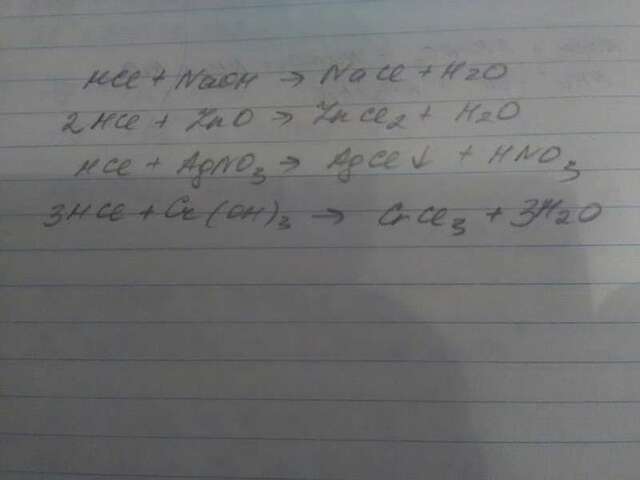 HCl + NaOH → NaCl + H2O
2HCl + ZnO → ZnCl2 + H2O
HCl + AgNO3 → AgCl↓ + HNO3
3HCl + Cr(OH)3 → CrCl3 + 3H2O